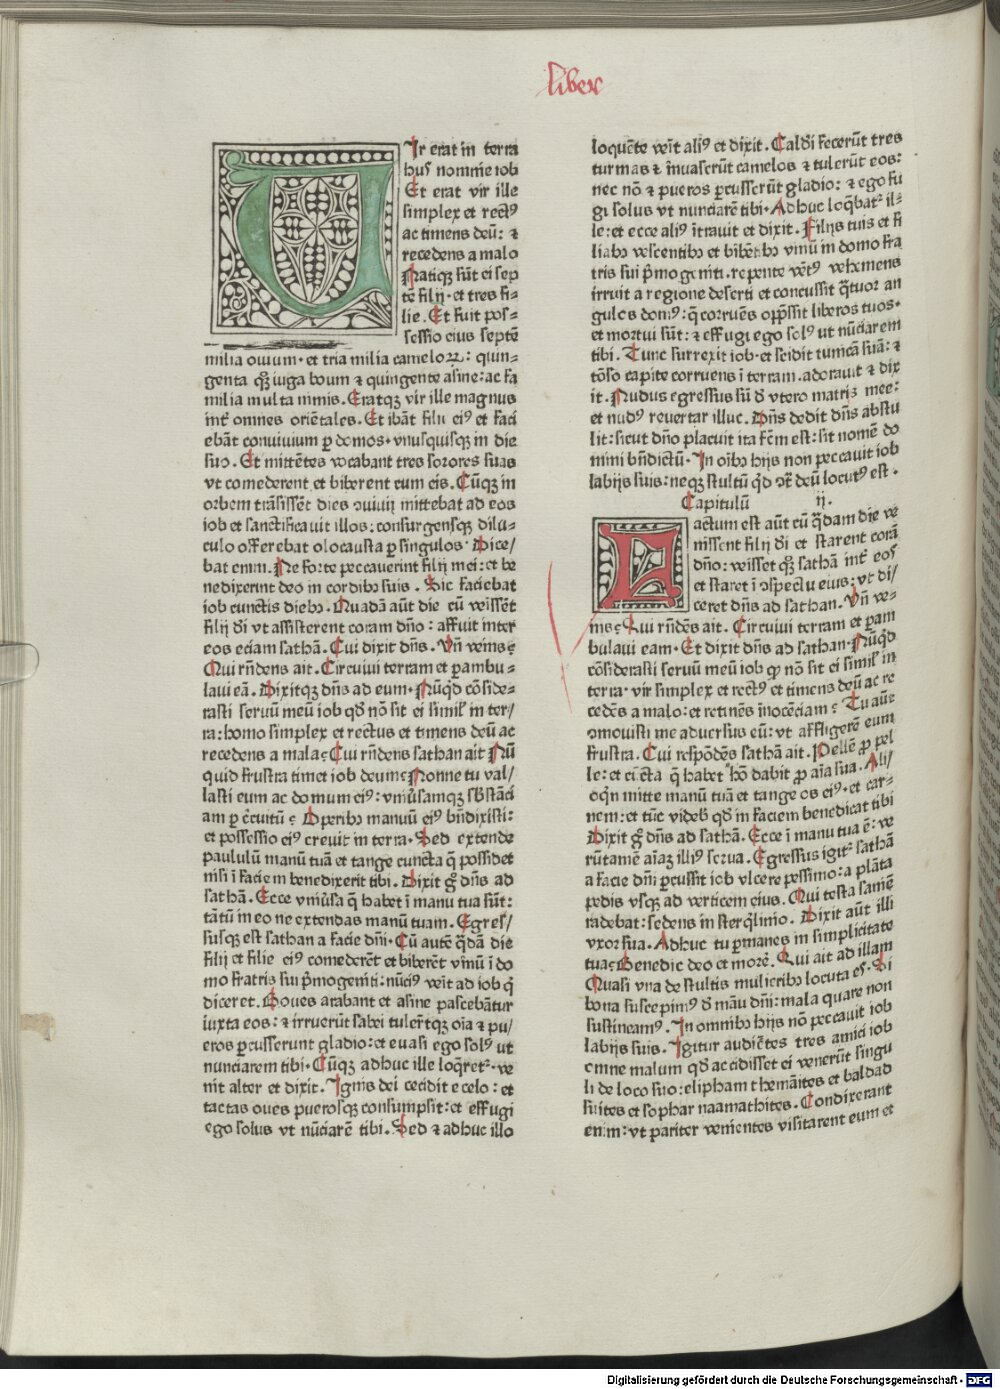 liber
Ir erat in terra
hus nomine iob
Et erat vir ille
simplex et rectꝰ
ac timens deū: ⁊
recedens a malo
Natiqꝫ sūt ei sep
tē filij · et tres fi⸗
lie. Et fuit pos⸗
sessio eius septē
milia ouium · et tria milia cameloꝝ: quin⸗
genta qꝫ iuga boum ⁊ quingente asine: ac fa
milia multa nimis. Eratqꝫ vir ille magnus
inť omnes oriētales. Et ibāt filii eiꝰ et faci
ebāt conuiuium ꝑ domos · vnusquisqꝫ in die
suo. Et mittētes vocabant tres sorores suas
vt comederent et biberent cum eis. Cūqꝫ in
orbem trāsissēt dies ↄuiuij mittebat ad eos
iob et sanctificauit illos: consurgensqꝫ dilu⸗
culo offerebat olocausta ꝑ singulos · Dice/
bat enim. Ne forte peccauerint filij mei: et be
nedixerint deo in cordibꝰ suis . Sic faciebat
iob cunctis diebꝰ. Quadā aūt die cū veissēt
filij dī vt assisterent coram dn̄o: affuit inter
eos eciam sathā. Cui dixit dn̄s. Vn̄ venis ?
Qui rn̄dens ait. Circuiui terram et ꝑambu⸗
laui eā. Dixitqꝫ dn̄s ad eum. Nūqd cōside⸗
rasti seruū meū iob qd̄ nō sit ei simil' in ter/
ra: homo simplex et rectus et timens deū ac
recedens a mala? Cui rn̄dens sathan ait Nū
quid frustra timet iob deum? Nonne tu val/
lasti eum ac domum eiꝰ: vniūsamqꝫ sb̄stāci
am ꝑ ĉcuitū ? Operibꝰ manuū eiꝰ bn̄dixisti:
et possessio eiꝰ creuit in terra. Sed extende
paululū manū tuā et tange cuncta q̄ possidet
nisi ī faciem benedixerit tibi. Dixit gͦ dn̄s ad
sathā. Ecce vniūsa q̄ habet ī manu tua sūt:
tātū in eo ne extendas manū tuam. Egres/
susqꝫ est sathan a facie dn̄i. Cū autē q̄dā die
filij et filie eiꝰ comederēt et biberēt vinū ī do
mo fratris sui p̄mogeniti: nūciꝰ veīt ad iob q̄
diceret. Boues arabant et asine pascebātur
iuxta eos: ⁊ irruerūt sabei tulerūtqꝫ oīa ⁊ pu/
eros ꝑcusserunt gladio: et euasi ego solꝰ ut
nunciarem tibi · Cūqꝫ adhuc ille loq̄ret᷑ · ve
nit alter et dixit. Ignis dei cecidit e celo: et
tactas oues puerosqꝫ consumpsit: et effugi
ego solus vt nūciarē tibi. Sed ⁊ adhuc illo
loquēte veīt aliꝰ et dixit. Caldi fecerūt tres
turmas ⁊ inuaserūt camelos ⁊ tulerūt eos:
nec nō ⁊ pueros ꝑcusserūt gladio: ⁊ ego fu
gi solus vt nunciarē tibi · Adhuc loq̄bat᷑ il⸗
le: et ecce aliꝰ ītrauit et dixit. Filijs tuis et fi
liabꝰ vescentibꝰ et bibētibꝰ vinū in domo fra
tris sui p̄mogeniti. repente vētꝰ vehemens
irruit a regione deserti et concussit q̄tuor an
gulos domꝰ: q̄ corruēs opp̄ssit liberos tuos ·
et mortui sūt: ⁊ effugi ego solꝰ ut nūciarem
tibi. Tunc surrexit iob · et scidit tunicā suā: ⁊
tōso capite corruens ī terram. adorauit ⁊ dix
it. Nudus egressus sū d̄ vtero matris mee:
et nudꝰ reuertar illuc. Dn̄s dedit dn̄s abstu
lit: sicut dn̄o placuit ita fc̄m est: sit nomē do
mini bn̄dictū. In oībꝰ hijs non peccauit iob
labijs suis: neqꝫ stultū qd̄ ↄt̄ deū locutꝰ est.
Capitulū ij.
actum est aūt cū q̄dam die ve
nissent filij dī et starent corā
dn̄o: veisset qꝫ sathā inť eos
et staret ī ↄspectu eius: vt di/
ceret dn̄s ad sathan. Vn̄ ve⸗
nis? Qui rn̄dēs ait. Circuiui terram et ꝑam
bulaui eam. Et dixit dn̄s ad sathan. Nūqd
cōsiderasti seruū meū iob ꝙ nō sit ei simil' in
terra · vir simplex et rectꝰ et timens deū ac re
cedēs a malo: et retinēs īnocēciam ? Tu aūt
ↄmouisti me aduersus eū: vt affligerē eum
frustra. Cui respōdēs sathā ait. Pellē ꝓ pel
le: et cūcta q̄ habet hō dabit ꝓ aīa sua. Ali/
oqn̄ mitte manū tuā et tange os eiꝰ · et car⸗
nem: et tūc videbꝰ qd̄ in faciem benedicat tibi
Dixit gͦ dn̄s ad sathā. Ecce ī manu tua ē: ve
rūtamē aīaꝫ illiꝰ serua. Egressus igit᷑ sathā
a facie dn̄i ꝑcussit iob vlcere pessimo: a plāta
pedis vsqꝫ ad verticem eius. Qui testa saniē
radebat: sedens in sterq̄linio. Dixit aūt illi
vxor sua. Adhuc tu ꝑmanes in simplicitate
tua? Benedic deo et morē. Qui ait ad illam
Quasi vna de stultis mulieribꝰ locuta es. Si
bona suscepimꝰ d̄ māu dn̄i: mala quare non
sustineamꝰ. In omnibꝰ hijs nō peccauit iob
labijs suis. Igitur audiētes tres amici iob
omne malum qd̄ accidisset ei venerūt singu
li de loco suo: elipham themāites et baldad
suites et sophar naamathites. Condixerant
enim: vt pariter venientes visitarent eum et
Digitalisierung gefördert durch die Deutsche Forschungsgemeinschaft - DFG